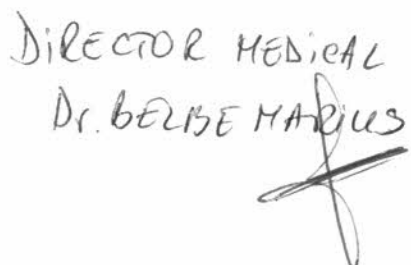 DIRECTOR MEDICAL
Dr. BELBE MARIUS